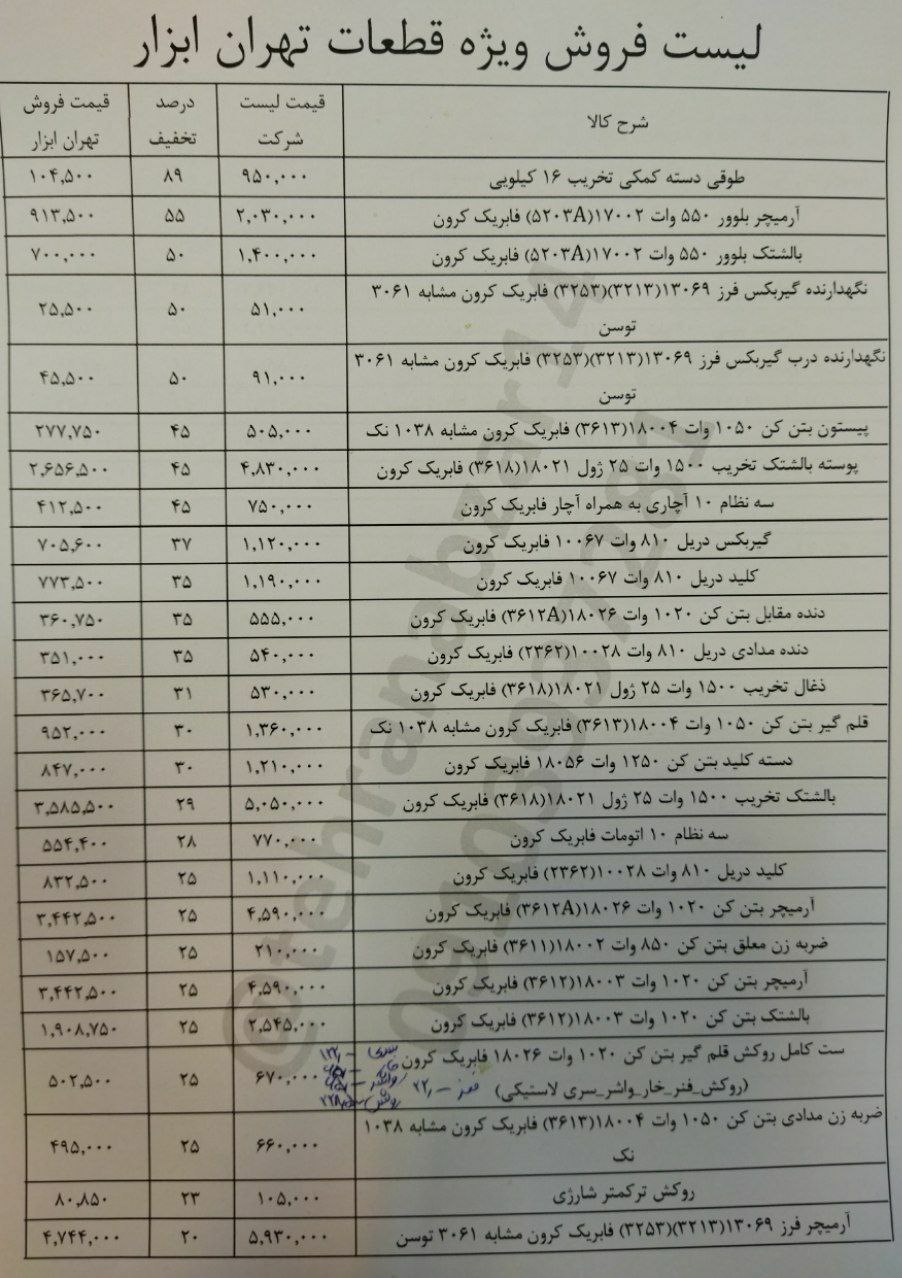 لیست فروش ویژه قطعات تهران ابزار
شرح کالا قیمت لیست شرکت درصد تخفیف قیمت فروش تهران ابزار
طوقی دسته کمکی تخریب ۱۶ کیلویی ۹۵۰,۰۰۰ ۸۹ ۱۰۴,۵۰۰
آرمیچر بلوور ۵۵۰ وات ۱۷۰۰۲(۵۲۰۳A) فابریک کرون ۲,۰۳۰,۰۰۰ ۵۵ ۹۱۳,۵۰۰
بالشتک بلوور ۵۵۰ وات ۱۷۰۰۲(۵۲۰۳A) فابریک کرون ۱,۴۰۰,۰۰۰ ۵۰ ۷۰۰,۰۰۰
نگهدارنده گیربکس فرز ۱۳۰۶۹(۳۲۱۳)(۳۲۵۳) فابریک کرون مشابه ۳۰۶۱
توسن ۵۱,۰۰۰ ۵۰ ۲۵,۵۰۰
نگهدارنده درب گیربکس فرز ۱۳۰۶۹(۳۲۱۳)(۳۲۵۳) فابریک کرون مشابه ۳۰۶۱
توسن ۹۱,۰۰۰ ۵۰ ۴۵,۵۰۰
پیستون بتن کن ۱۰۵۰ وات ۱۸۰۰۴(۳۶۱۳) فابریک کرون مشابه ۱۰۳۸ نک ۵۰۵,۰۰۰ ۴۵ ۲۷۷,۷۵۰
پوسته بالشتک تخریب ۱۵۰۰ وات ۲۵ ژول ۱۸۰۲۱(۳۶۱۸) فابریک کرون ۴,۸۳۰,۰۰۰ ۴۵ ۲,۶۵۶,۵۰۰
سه نظام ۱۰ آچاری به همراه آچار فابریک کرون ۷۵۰,۰۰۰ ۴۵ ۴۱۲,۵۰۰
گیربکس دریل ۸۱۰ وات ۱۰۰۶۷ فابریک کرون ۱,۱۲۰,۰۰۰ ۳۷ ۷۰۵,۶۰۰
کلید دریل ۸۱۰ وات ۱۰۰۶۷ فابریک کرون ۱,۱۹۰,۰۰۰ ۳۵ ۷۷۳,۵۰۰
دنده مقابل بتن کن ۱۰۲۰ وات ۱۸۰۲۶(۳۶۱۲A) فابریک کرون ۵۵۵,۰۰۰ ۳۵ ۳۶۰,۷۵۰
دنده مدادی دریل ۸۱۰ وات ۱۰۰۲۸(۲۳۶۲) فابریک کرون ۵۴۰,۰۰۰ ۳۵ ۳۵۱,۰۰۰
ذغال تخریب ۱۵۰۰ وات ۲۵ ژول ۱۸۰۲۱(۳۶۱۸) فابریک کرون ۵۳۰,۰۰۰ ۳۱ ۳۶۵,۷۰۰
قلم گیر بتن کن ۱۰۵۰ وات ۱۸۰۰۴(۳۶۱۳) فابریک کرون مشابه ۱۰۳۸ نک ۱,۳۶۰,۰۰۰ ۳۰ ۹۵۲,۰۰۰
دسته کلید بتن کن ۱۲۵۰ وات ۱۸۰۵۶ فابریک کرون ۱,۲۱۰,۰۰۰ ۳۰ ۸۴۷,۰۰۰
بالشتک تخریب ۱۵۰۰ وات ۲۵ ژول ۱۸۰۲۱(۳۶۱۸) فابریک کرون ۵,۰۵۰,۰۰۰ ۲۹ ۳,۵۸۵,۵۰۰
سه نظام ۱۰ اتومات فابریک کرون ۷۷۰,۰۰۰ ۲۸ ۵۵۴,۴۰۰
کلید دریل ۸۱۰ وات ۱۰۰۲۸(۲۳۶۲) فابریک کرون ۱,۱۱۰,۰۰۰ ۲۵ ۸۳۲,۵۰۰
آرمیچر بتن کن ۱۰۲۰ وات ۱۸۰۲۶(۳۶۱۲A) فابریک کرون ۴,۵۹۰,۰۰۰ ۲۵ ۳,۴۴۲,۵۰۰
ضربه زن معلق بتن کن ۸۵۰ وات ۱۸۰۰۲(۳۶۱۱) فابریک کرون ۲۱۰,۰۰۰ ۲۵ ۱۵۷,۵۰۰
آرمیچر بتن کن ۱۰۲۰ وات ۱۸۰۰۳(۳۶۱۲) فابریک کرون ۴,۵۹۰,۰۰۰ ۲۵ ۳,۴۴۲,۵۰۰
بالشتک بتن کن ۱۰۲۰ وات ۱۸۰۰۳(۳۶۱۲) فابریک کرون ۲,۵۴۵,۰۰۰ ۲۵ ۱,۹۰۸,۷۵۰
ست کامل روکش قلم گیر بتن کن ۱۰۲۰ وات ۱۸۰۲۶ فابریک کرون
(روکش_فنر_خار_واشر_سری لاستیکی) ۶۷۰,۰۰۰ ۲۵ ۵۰۲,۵۰۰
ضربه زن مدادی بتن کن ۱۰۵۰ وات ۱۸۰۰۴(۳۶۱۳) فابریک کرون مشابه ۱۰۳۸
نک ۶۶۰,۰۰۰ ۲۵ ۴۹۵,۰۰۰
روکش ترکمتر شارژی ۱۰۵,۰۰۰ ۲۳ ۸۰,۸۵۰
آرمیچر فرز ۱۳۰۶۹(۳۲۱۳)(۳۲۵۳) فابریک کرون مشابه ۳۰۶۱ توسن ۵,۹۳۰,۰۰۰ ۲۰ ۴,۷۴۴,۰۰۰